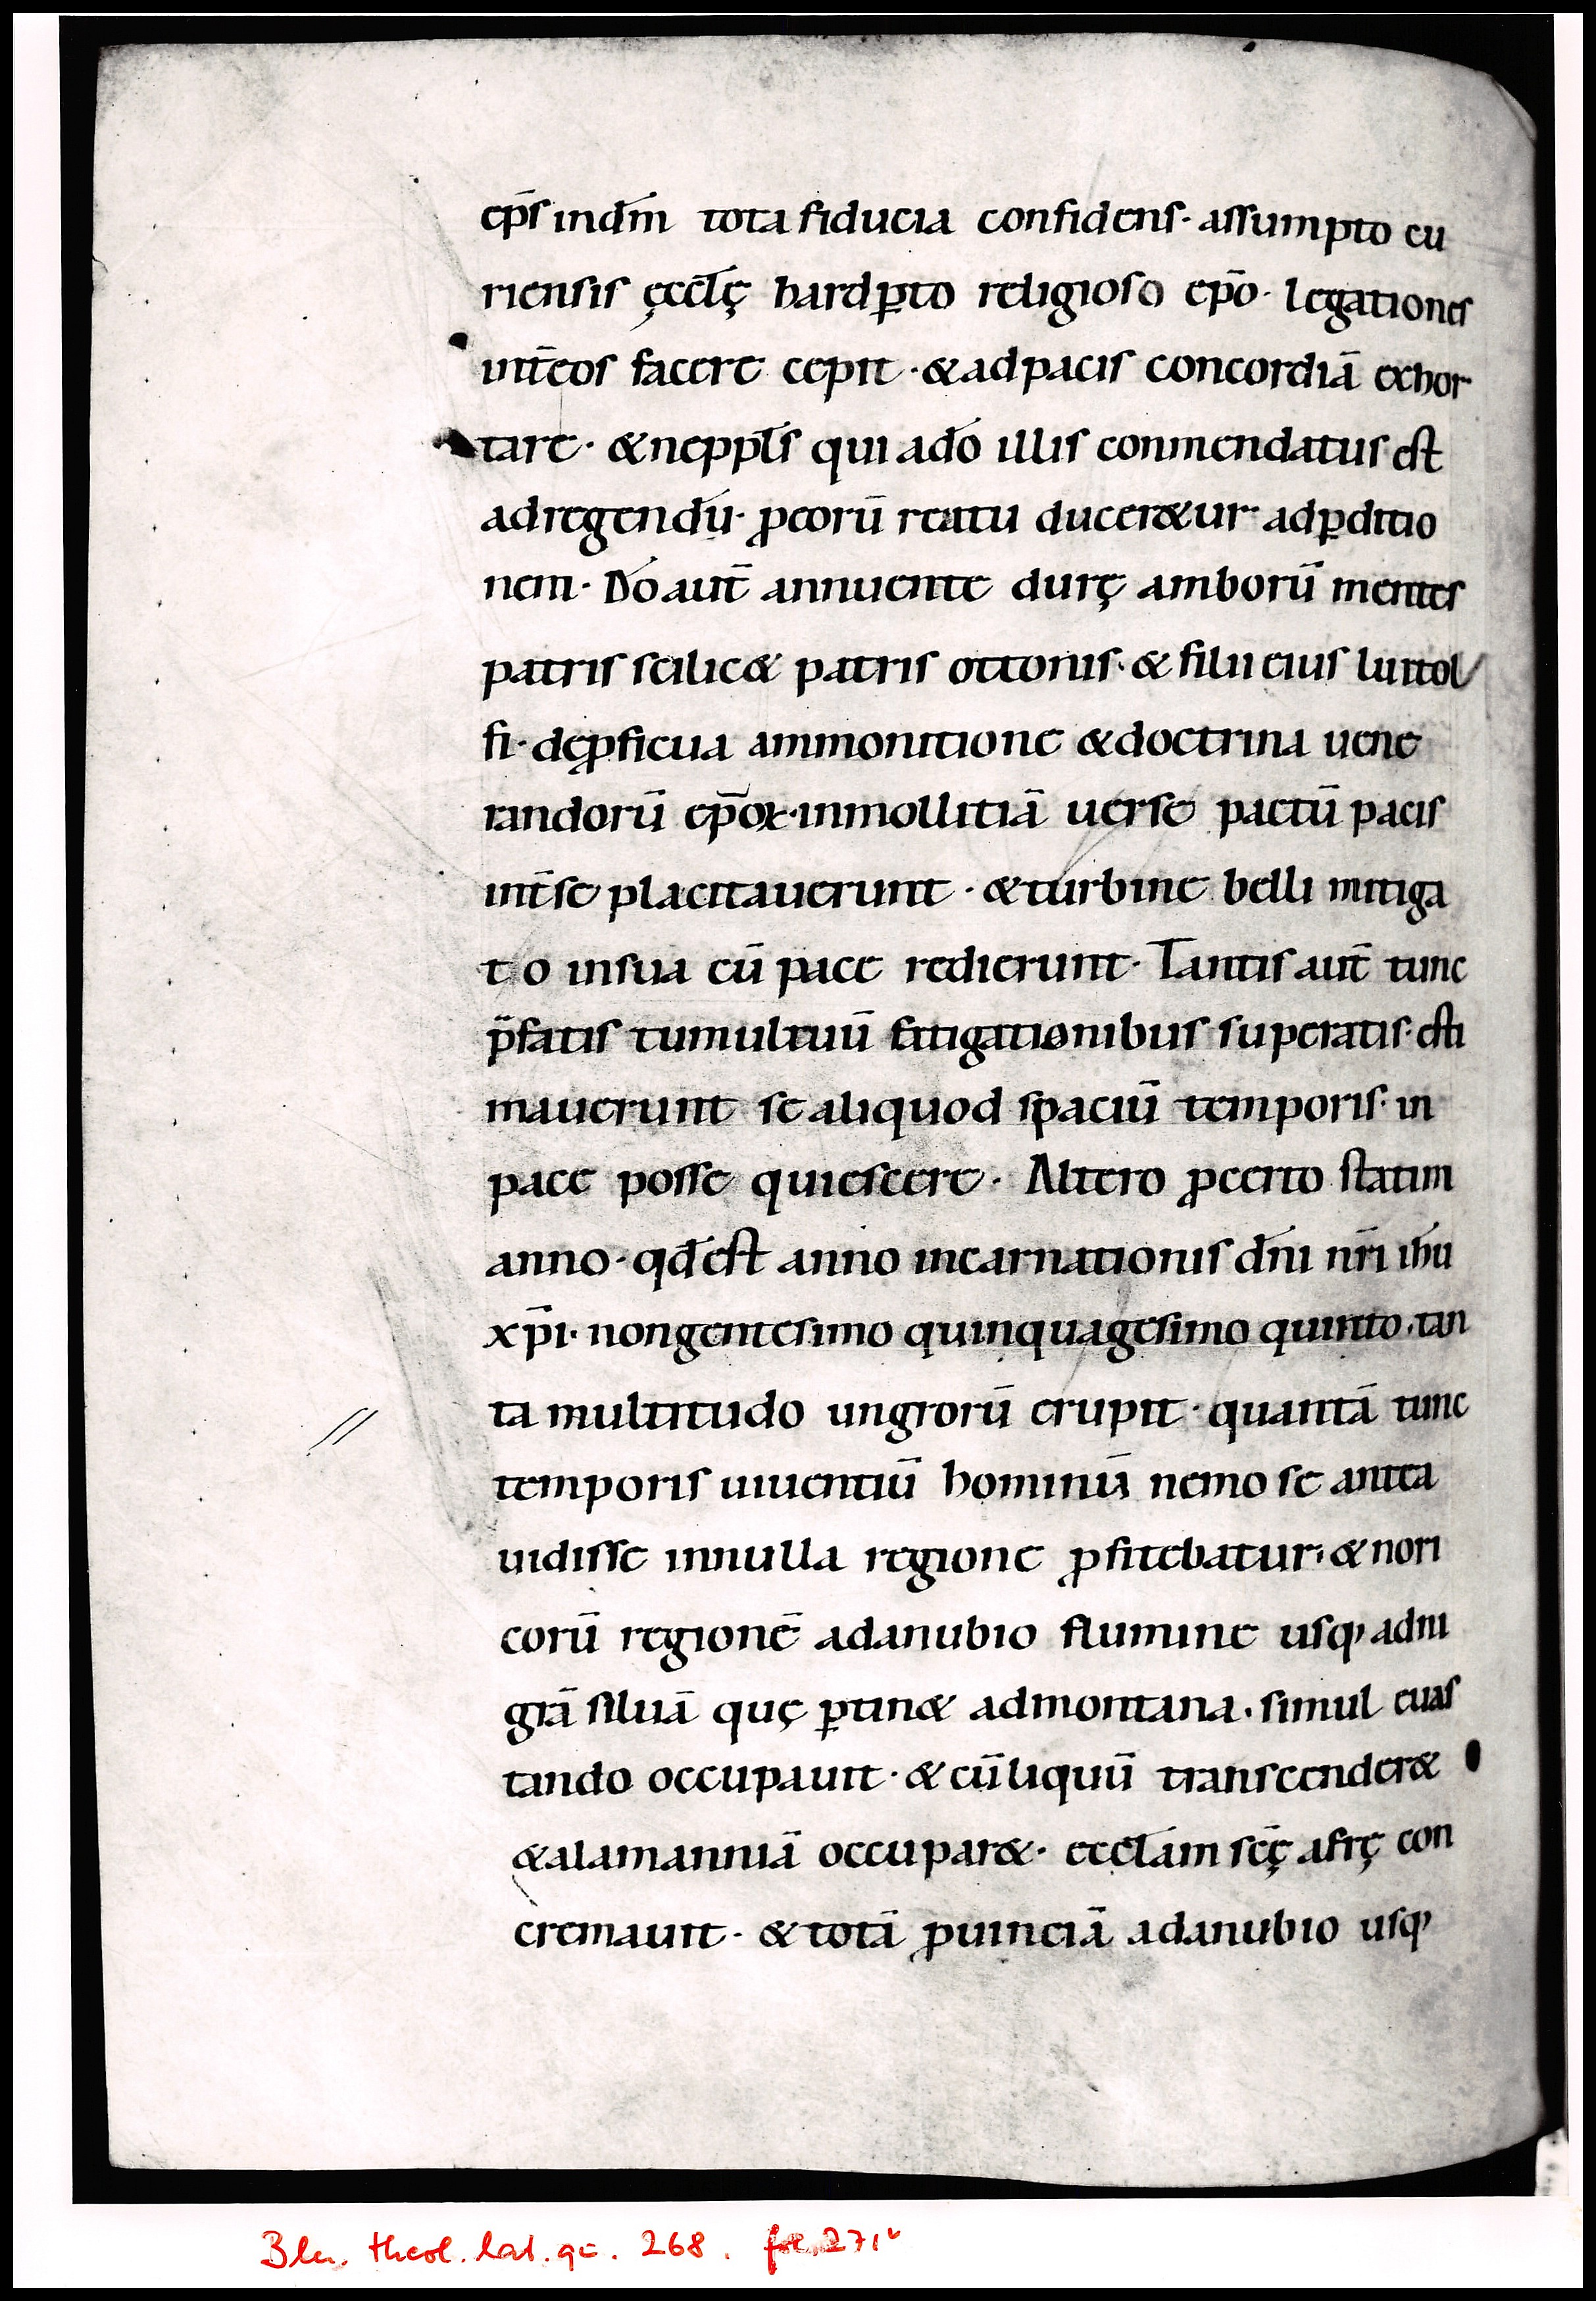 ep̄s ind̄m tota fiducia confidens· assumpto cu
riensis ęccl̄ę hardꝑto religioso ep̄o· legationes
int̄eos facere cepit· &adpacis concordiā exhor
tare· &neppl̄s qui ad̄o illis conmendatus est
adregendū· ꝓeorū reatu ducer&ur· adꝑditio
nem· D̄o aut̄ annuente durę amborū mentes
patris scilic& patris ottonis· & filii eius liutol
fi· deꝓficua ammonitione &doctrina uene
randorū ep̄oꝝ· inmollitiā uersę pactū pacis
int̄se placitauerunt· &turbine belli mitiga
to insua cū pace redierunt· Tantis aut̄ tunc
p̄fatis tumultuū fatigationibus superatis· esti
mauerunt se aliquod spaciū temporis· in
pace posse quiescere· Altero ꝓcerto statim
anno· qd̄est anno incarnationis dn̄i nr̄i ih̄u
xp̄i· nongentesimo quinquagesimo quinto· tan
ta multitudo ungrorū erupit· quantā tunc
temporis uiuentiū hominū nemo se antea
uidisse innulla regione ꝓfitebatur· & nori
corū regionē adanubio flumine usq; adni
grā siluā quę ꝑtin& admontana· simul euas
tando occupauit· & cūliquū transcender&
&alamanniā occupar&· eccl̄am sc̄ę afrę con
cremauit· & totā ꝓuinciā adanubio usq;
Bln. theol. lat. qu. 268. fol. 271v